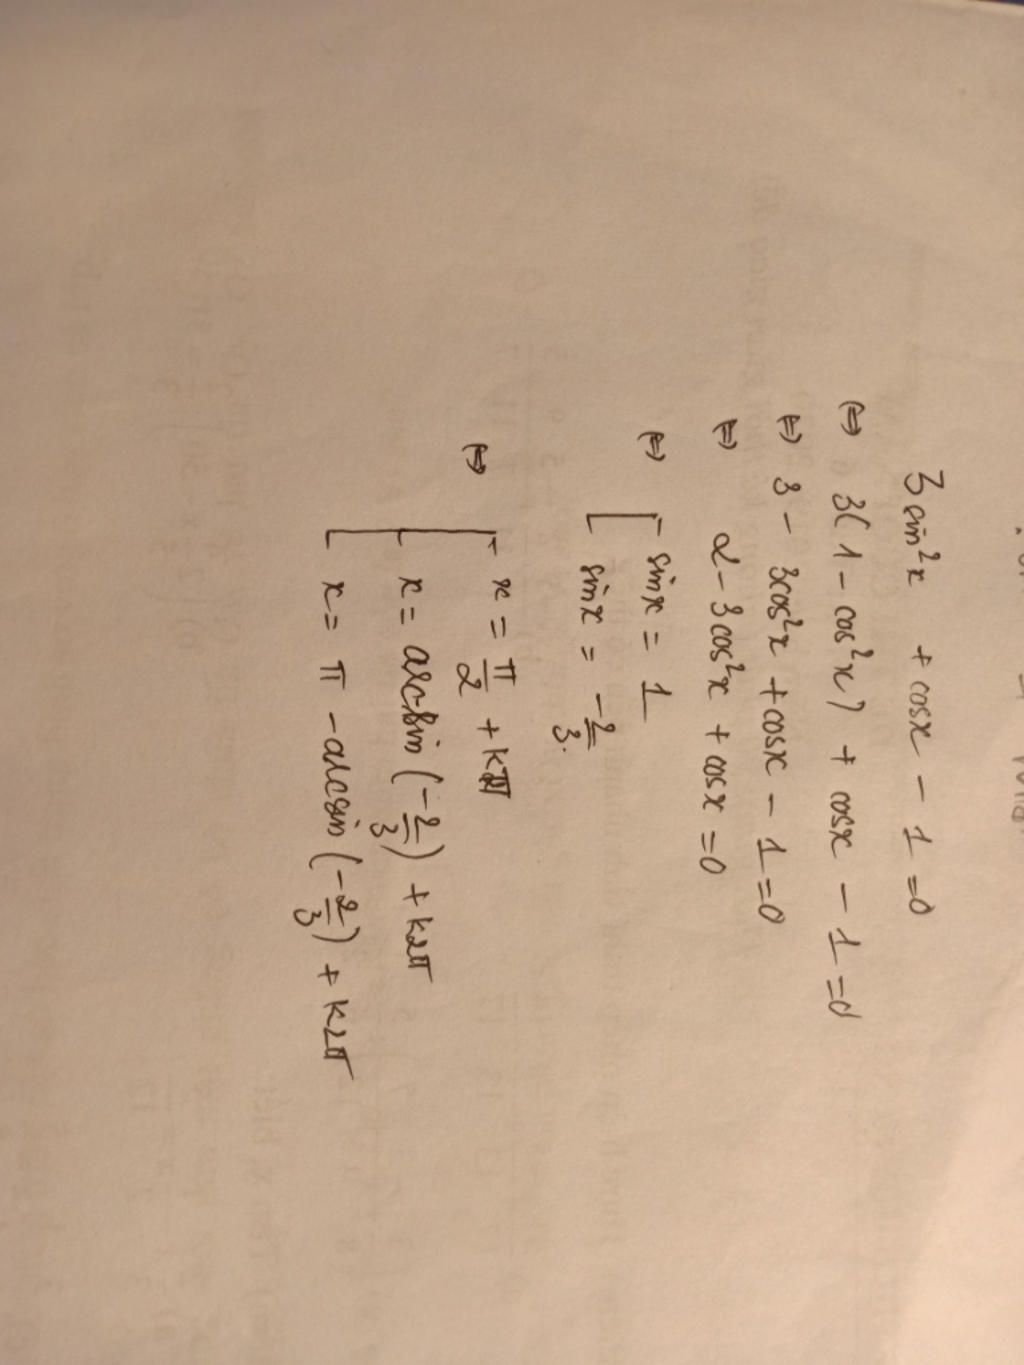 3 sin²x + cosx - 1 = 0
⇔ 3(1 - cos²x) + cosx - 1 = 0
⇔ 3 - 3cos²x + cosx - 1 = 0
⇔ 2 - 3cos²x + cosx = 0
⇔ [ sinx = 1
sinx = -2/3.
⇔ [ x = π/2 + k2π
x = arcsin(-2/3) + k2π
x = π - arcsin(-2/3) + k2π